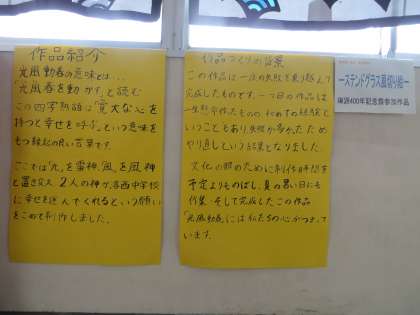 作品紹介
光風動春の意味とは…
光風春を動かす、と読む
この四字熟語は「寛大な心を
持つと幸せを呼ぶ」という意味を
もつ縁起の良い言葉です。
ここでは「光」を雷神、「風」を風神
と置き換え 2人の神が、洛西中学校
に幸せを運んでくれるという願い
をこめて制作しました。
作品づくりの背景
この作品は一度の失敗を乗り越えて
完成したものです。一つ目の作品は
一生懸命作ったものの 初めての経験と
いうこともあり、失敗が多かったため
やり直しという結果となりました。
文化の部のために制作時間を
予定よりものばし、夏の暑い日にも
作業、そして完成したこの作品
「光風動春」には私たちの心がつまって
います。
ーステンドグラス風切り絵ー
琳派400年記念祭参加作品